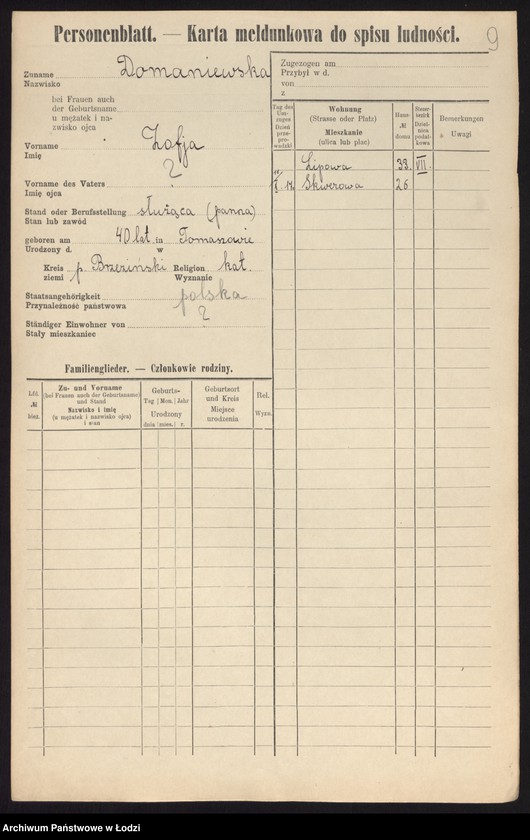 Personenblatt. — Karta meldunkowa do spisu ludności.
9
Zuname
Nazwisko
Domaniewska
bei Frauen auch
der Geburtsname
u mężatek i na-
zwisko ojca
Vorname
Imię
Zofja
Vorname des Vaters
Imię ojca
?
Stand oder Berufsstellung
Stan lub zawód
służąca (panna)
geboren am 40 lat in Tomaszowie
Urodzony d. w
Kreis p. Brzeziński Religion kat.
ziemi Wyznanie
Staatsangehörigkeit
Przynależność państwowa
polska
?
Ständiger Einwohner von
Stały mieszkaniec
Zugezogen am
Przybył w d.
von
z
Tag des Um-zuges Dzień prze-prowadzki
Wohnung
(Strasse oder Platz)
Mieszkanie
(ulica lub plac)
Haus-
№
domu
Bemerkungen
Uwagi
Lipowa 33. VII.
Skwerowa 26
Familienglieder. — Członkowie rodziny.
Lfd.
№
bież.
Zu- und Vorname
(bei Frauen auch der Geburtsname)
und Stand
Nazwisko i imię
(u mężatek i nazwisko ojca)
i stan
Geburts-
Tag Mon. Jahr
Urodzony
dnia mies. r.
Geburtsort
und Kreis
Miejsce
urodzenia
Rel.
Wyzn.
Archiwum Państwowe w Łodzi